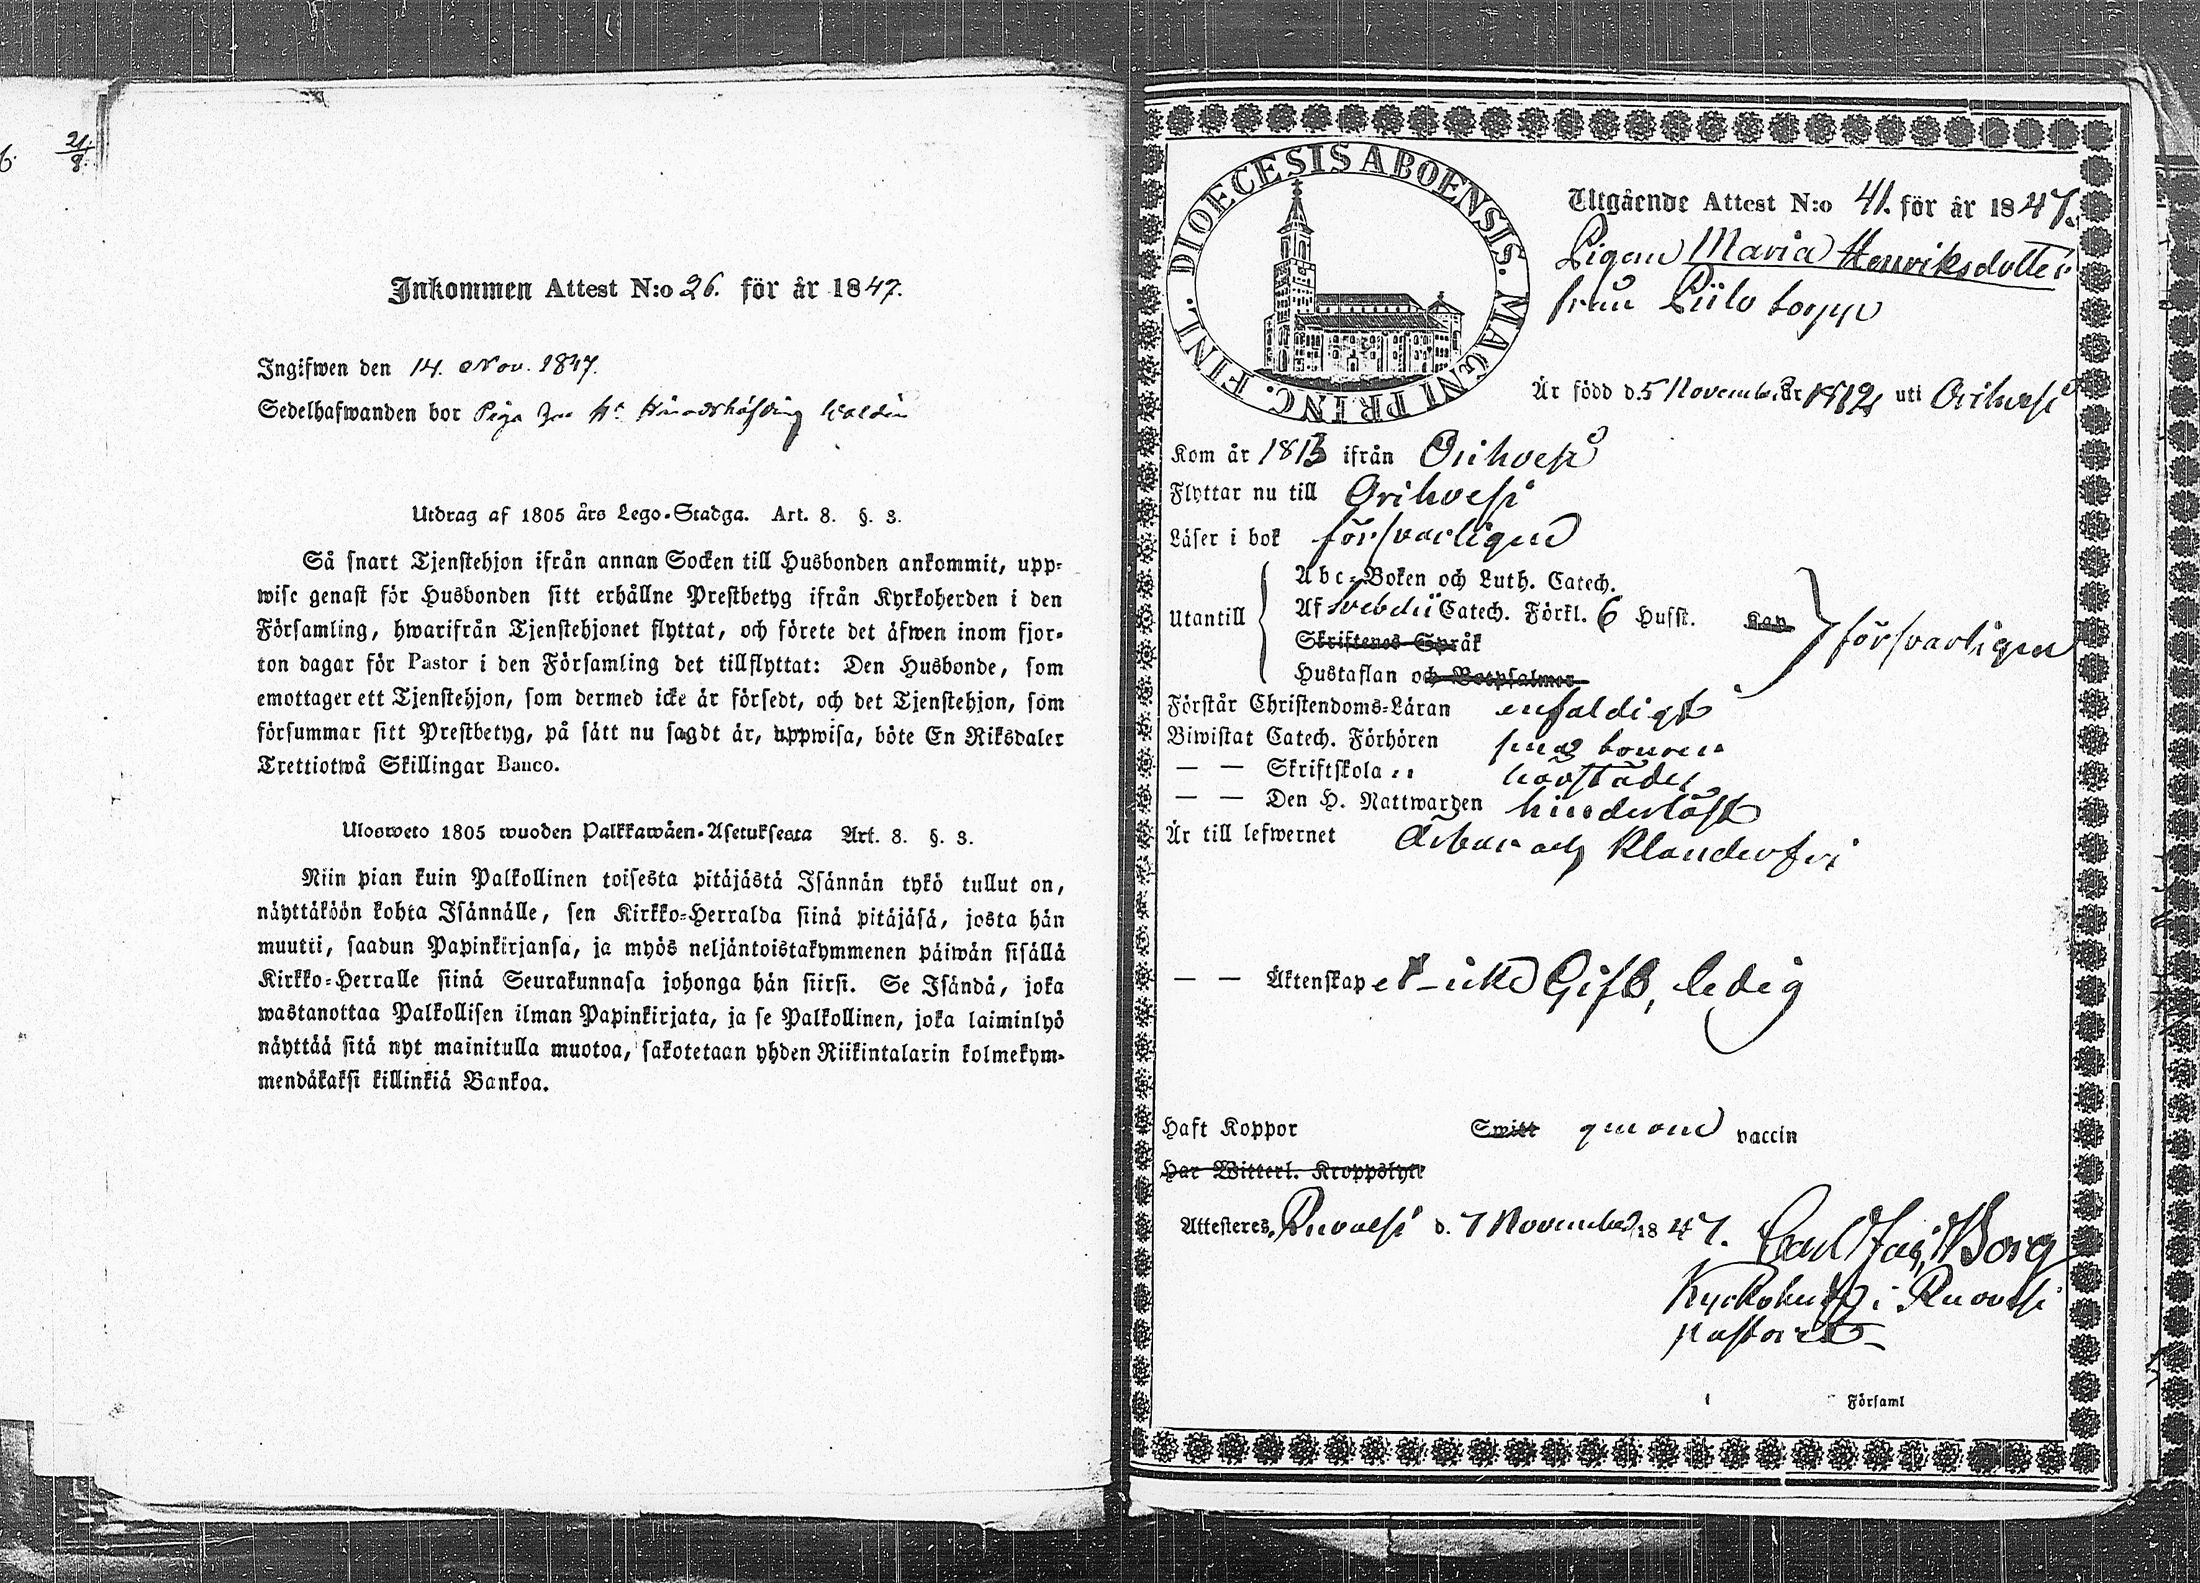 21/9.
Inkommen Attest N:o 26. för år 1847.
Ingifwen den 14. Nov. 1847.
Sedelhafwanden bor Piga hos Hr Häradshöfding
Utdrag af 1805 års Lego-Stadga. Art. 8. §. 3.
Så snart Tjenstehjon ifrån annan Socken till Husbonden ankommit, upp-
wise genast för Husbonden sitt erhållne Prestbetyg ifrån Kyrkoherden i den
Församling, hwarifrån Tjenstehjonet flyttat, och förete det äfwen inom fjor-
ton dagar för Pastor i den Församling det tillflyttat: Den Husbonde, som
emottager ett Tjenstehjon, som dermed icke är försedt, och det Tjenstehjon, som
försummar sitt Prestbetyg, på sätt nu sagdt är, uppwisa, böte En Riksdaler
Trettiotwå Skillingar Banco.
Ulosweto 1805 wuoden Palkkawäen-Asetuksesta Art. 8. §. 3.
Niin pian kuin Palkollinen toisesta pitäjästä Isännän tykö tullut on,
näyttäköön kohta Isännälle, sen Kirkko-Herralda siinä pitäjäsä, josta hän
muutti, saadun Papinkirjansa, ja myös neljäntoistakymmenen päiwän sisällä
Kirkko-Herralle siinä Seurakunnasa johonga hän siirsi. Se Isändä, joka
wastanottaa Palkollisen ilman Papinkirjata, ja se Palkollinen, joka laiminlyö
näyttää sitä nyt mainitulla muotoa, sakotetaan yhden Riikintalarin kolmekym-
mendäkaksi killinkiä Bankoa.
DIOECESIS ABOENSIS. MAGNI PRINC. FINL.
Utgående Attest N:o 41. för år 1847.
Pigan Maria Henriksdotter
från Piilo torpp
Är född d. 5 November år 1812 uti Orihvesi
Kom år 1813 ifrån Orihvesi
Flyttar nu till Orihvesi
Läser i bok försvarligen
Utantill
Abc-Boken och Luth. Catech.
Af Svebelii Catech. Förkl. 6 Hufst. Kan
Skriftenes Språk
Hustaflan och Botpsalmer
försvarligen
Förstår Christendoms-Läran enfaldigt
Biwistat Catech. Förhören
— — Skriftskola
— — Den H. Nattwarden hinderlöst
Är till lefwernet ärbar och klanderfri
— — Äktenskapet - icke Gift, ledig
Haft Koppor Switt genom vaccin
Har Witterl. Kroppslyte
Attesteres, Ruovesi d. 7 November 1847. Carl Borg
Kyrkoherde i Ruovesi
pastorat
i Församl